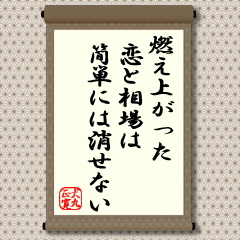 燃え上がった
恋と相場は
簡単には消せない